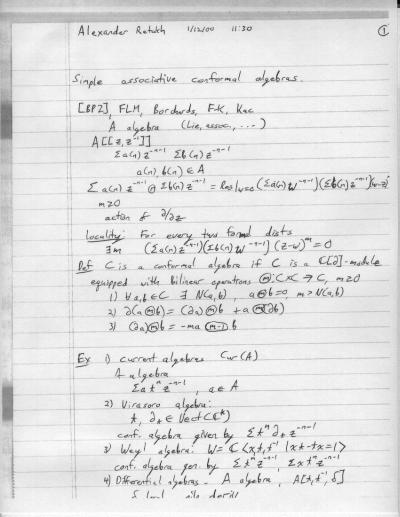 Alexander Retakh 1/12/00 11:30 ①
Simple associative conformal algebras.
[BPZ], FLM, Borcherds, F-K, Kac
A algebra (Lie, assoc, ...)
A[[z,z⁻¹]]
Σa(n)z⁻ⁿ⁻¹ Σb(n)z⁻ⁿ⁻¹
a(n), b(n) ∈ A
Σa(n)z⁻ⁿ⁻¹ ⓜ Σb(n)z⁻ⁿ⁻¹ = Res|w=0 (Σa(n)w⁻ⁿ⁻¹)(Σb(n)z⁻ⁿ⁻¹)(w-z)ᵐ
m≥0
action of ∂/∂z
Locality: For every two formal dists
∃m (Σa(n)z⁻ⁿ⁻¹)(Σb(n)w⁻ⁿ⁻¹)(z-w)ᵐ=0
Def C is a conformal algebra if C is a ℂ[∂]-module
equipped with bilinear operations ⓜ: C×C → C, m≥0
1) ∀a,b∈C ∃ N(a,b), aⓜb=0, m>N(a,b)
2) ∂(aⓜb) = (∂a)ⓜb + aⓜ(∂b)
3) (∂a)ⓜb = -ma (m-1) b
Ex 1) current algebras Cur(A)
A algebra
Σatⁿz⁻ⁿ⁻¹, a∈A
2) Virasoro algebra:
t, ∂ₜ ∈ Vect(ℂ*)
conf. algebra given by Σtⁿ∂ₜz⁻ⁿ⁻¹
3) Weyl algebra: W = ℂ⟨x,t,t⁻¹ | xt-tx=1⟩
conf. algebra gen. by Σtⁿz⁻ⁿ⁻¹ Σxtⁿz⁻ⁿ⁻¹
4) Differential algebras - A algebra, A[t,t⁻¹,δ]